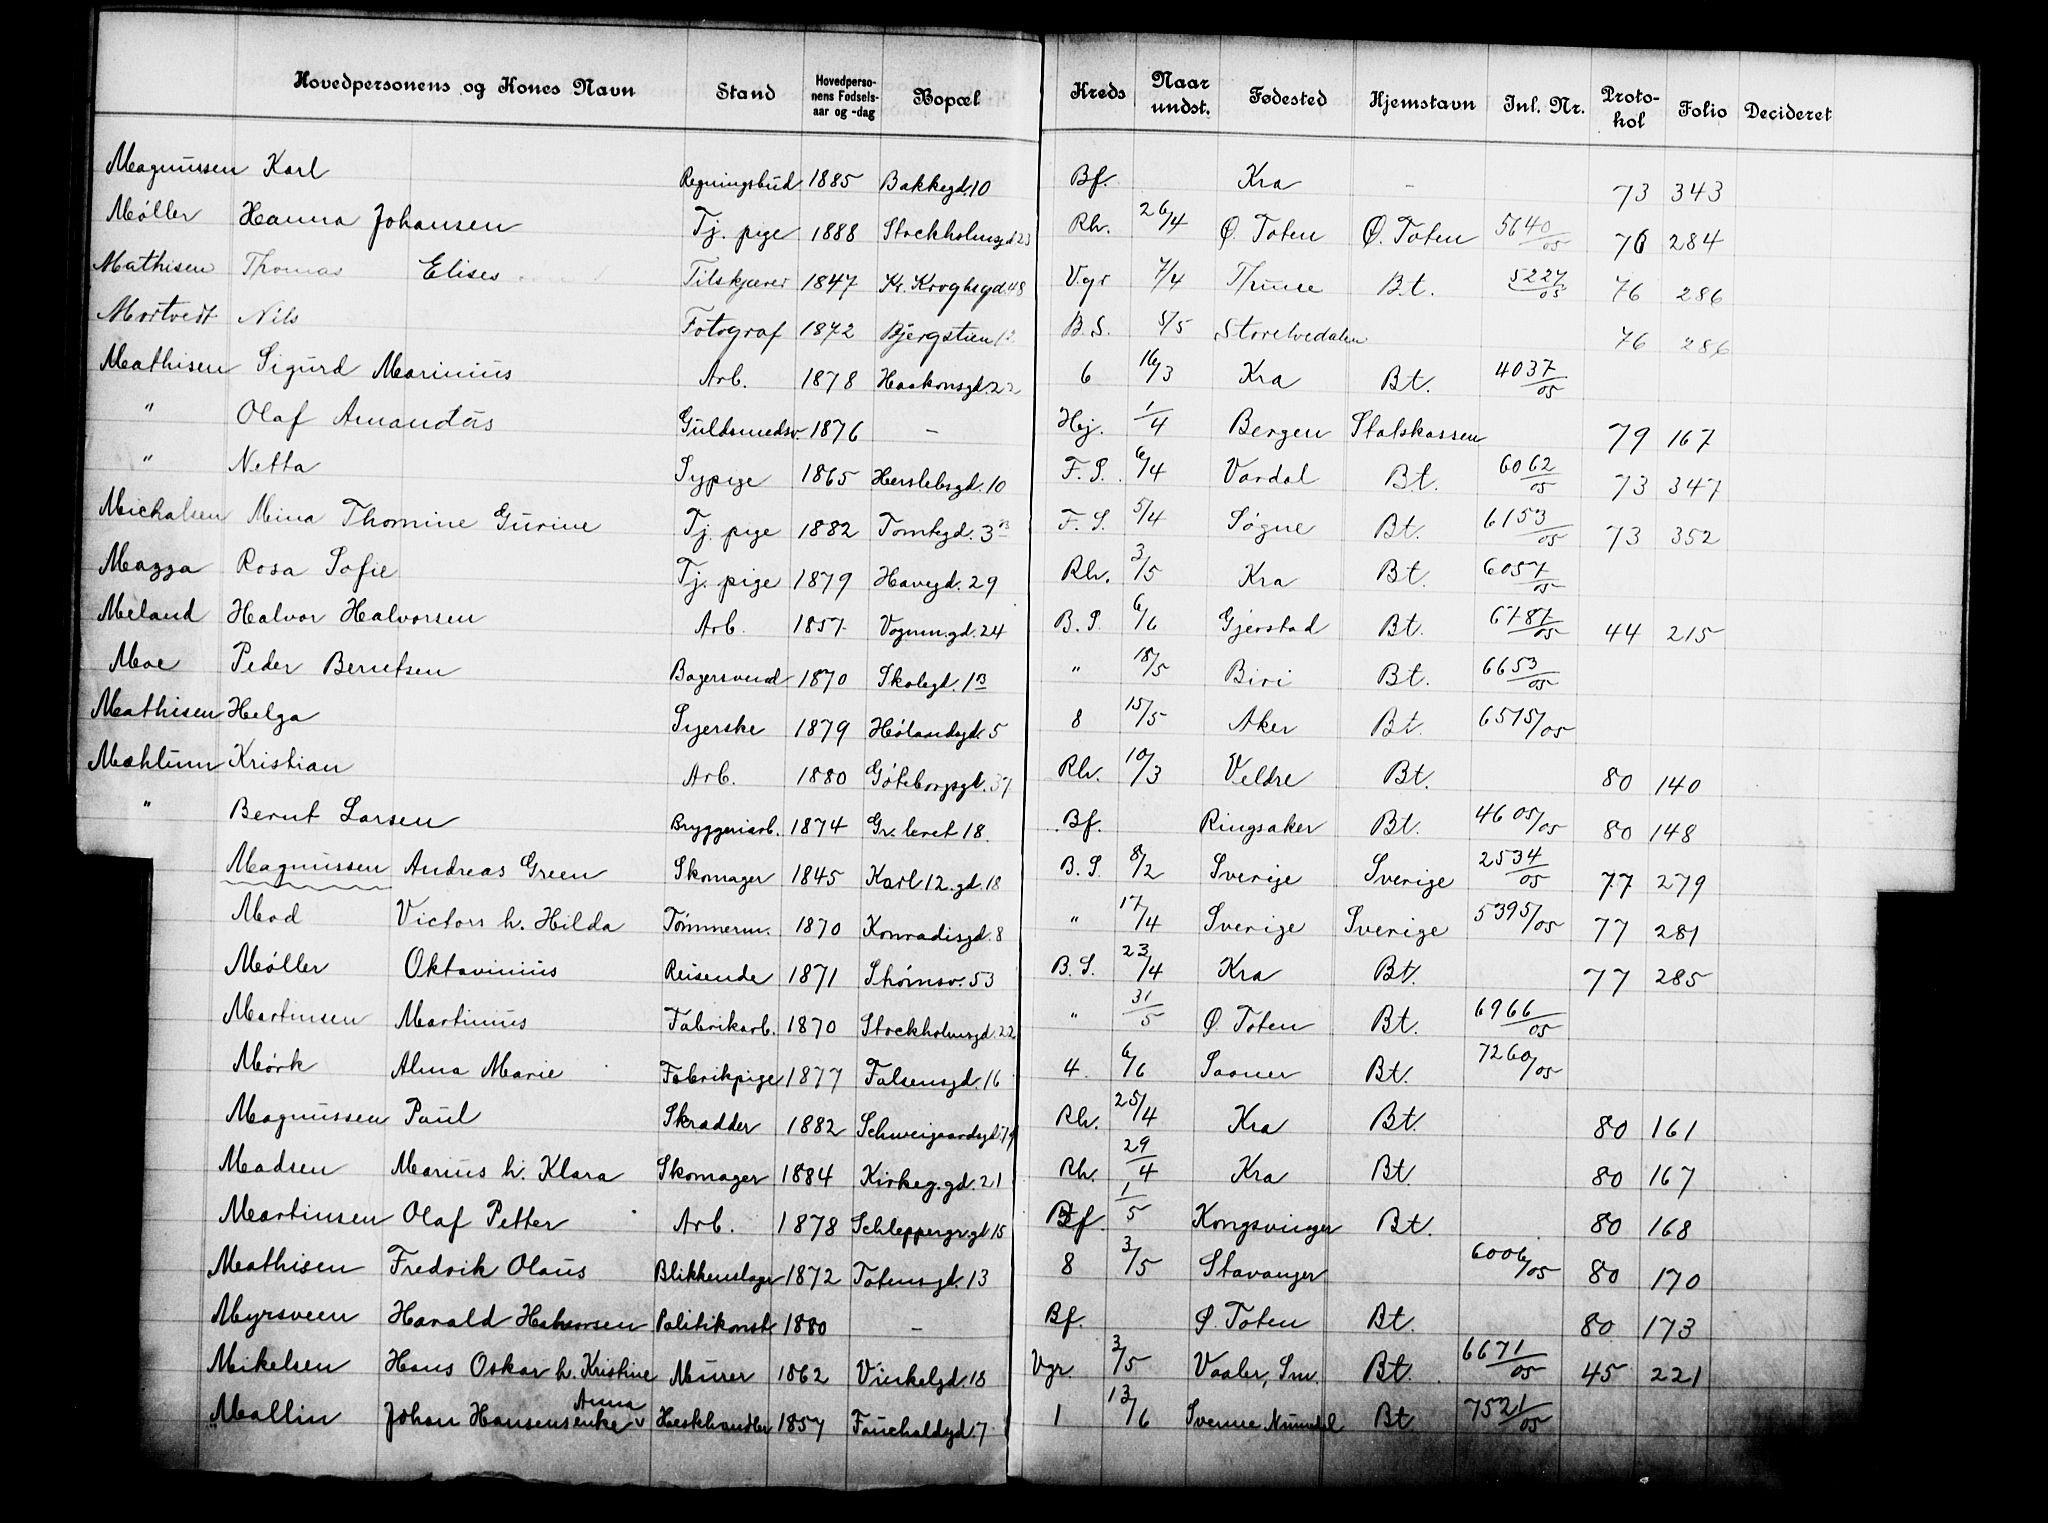 Hovedpersonens og Kones Navn Stand Hovedpersonens Fødselsaar og -dag Bopæl Kreds Naar undst. Fødested Hjemstavn Inl. Nr. Protokol Folio Decideret
Magnussen Karl Regningsbud 1885 Bakkegd. 10 Bf. Kra - 73 343
Møller Hanna Johansen Tj. pige 1888 Stockholmsgd 23 Rh. 26/4 Ø. Toten Ø. Toten 5640/05 76 284
Mathisen Thomas Elises 1847 Kr. Kroghsgd. 48 Vgr 7/4 Bt. 5227/05 76 286
Mortvedt Nils Fotograf 1872 Bjergstien 12 B.S. 5/5 Storelvedalen 76 286
Mathisen Sigurd Marinius Arb. 1878 Haakonsgd. 22 6 16/3 Kra Bt. 4037/05
" Olaf Amandus Guldsmedsv. 1876 - Hej. 1/4 Bergen Statskassen 79 167
" Netta Sypige 1865 Herslebsgd. 10 F. S. 6/4 Vardal Bt. 6062/05 73 347
Michalsen Mina Thomine Gurine Tj. pige 1882 Tomtegd. 3 B F. S. 5/4 Søgne Bt. 6153/05 73 352
Mazza Rosa Sofie Tj. pige 1879 Havegd. 29 Rh. 3/5 Kra Bt. 6057/05
Meland Halvor Halvorsen Arb. 1857 Vognm.gd. 24 B. S. 6/6 Gjerstad Bt. 6787/05 44 215
Moe Peder Berntsen Bagersvend 1870 Skolegd. 1 B " 18/5 Biri Bt. 6653/05
Mathisen Helga Syerske 1879 Hølandsgd. 5 8 15/5 Aker Bt. 6575/05
Mæhlum Kristian Arb. 1880 Göteborgsgd. 37 Rh. 10/3 Veldre Bt. 80 140
" Bernt Larsen Bryggeriarb. 1874 Gr. leret 18. Bf. Ringsaker Bt. 4605/05 80 148
Magnussen Andreas Green Skomager 1845 Karl 12. gd. 18 B. S. 8/2 Sverige Sverige 2534/05 77 279
Mod Victor h. Hilda Tømmerm. 1870 Konradisgd. 8 " 17/4 Sverige Sverige 5395/05 77 281
Møller Oktavinius Reisende 1871 Strømsv. 53 B. S. 23/4 Kra Bt. 77 285
Martinsen Martinius Fabrikarb. 1870 Stockholmsgd. 22 " 31/5 Ø. Toten Bt. 6966/05
Mørk Alma Marie Fabrikpige 1877 Falsensgd. 16 4. 6/6 Saaner Bt. 7260/05
Magnussen Paul Skrædder 1882 Schweigaardsgd. 79 Rh. 25/4 Kra Bt. 80 161
Madsen Marius h. Klara Skomager 1884 Kirkeg.gd. 21 Rh. 29/4 Kra Bt. 80 167
Martinsen Olaf Petter Arb. 1878 Schleppergr.gd 15 Bf. 1/5 Kongsvinger Bt. 80 168
Mathisen Fredrik Olaus Blikkenslager 1872 Totensgd. 13 8 3/5 Stavanger 6006/05 80 170
Myrsveen Harald Halvorsen Politikonst. 1880 - Bf. Ø. Toten Bt. 80. 173
Mikelsen Hans Oskar h. Kristine Murer 1862 Vinkelgd. 18 Vgr. 3/5 Vaaler, Sm. Bt. 6671/05 45 221
Mallin Johan Hansens enke Anna Heskhandler 1857 Fauchaldsgd. 7 1 13/6 Svenne Numedal Bt 7521/05